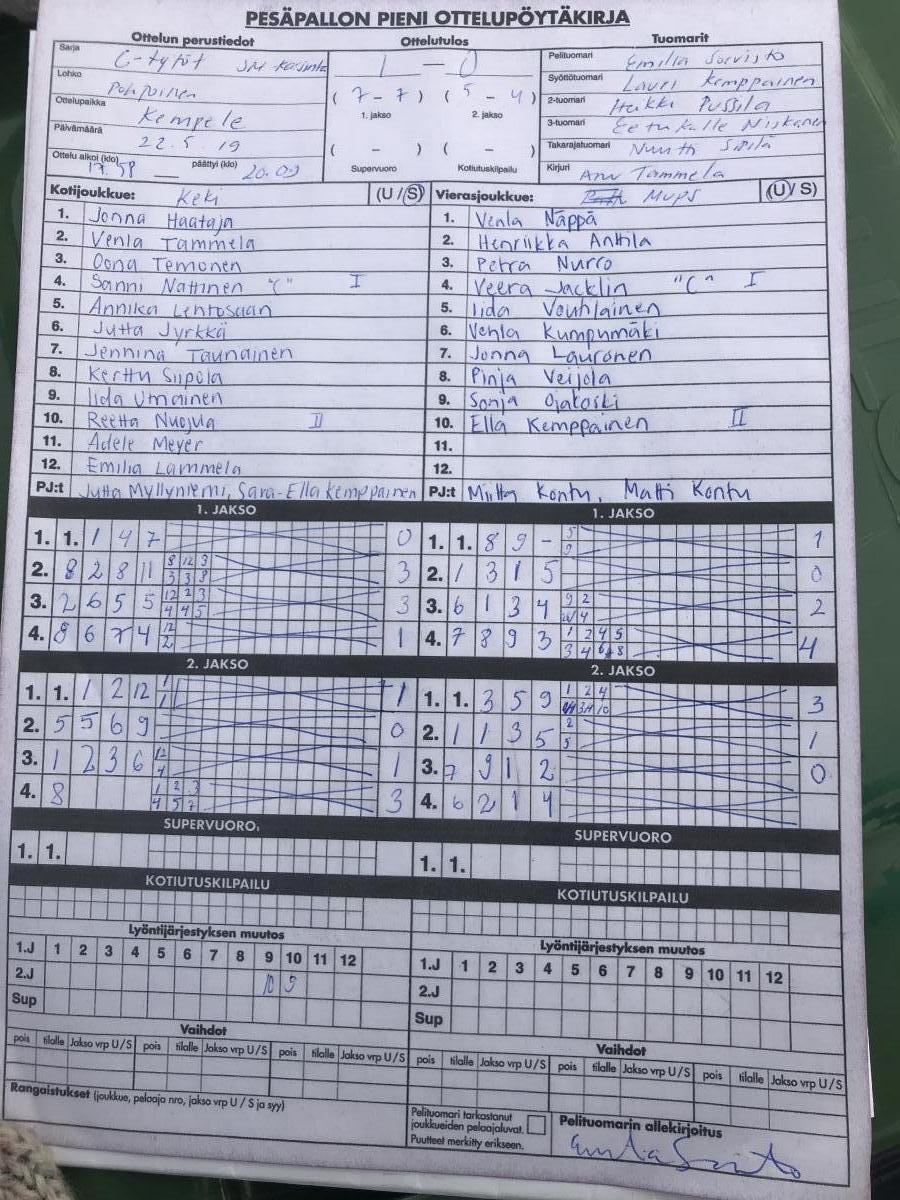 PESÄPALLON PIENI OTTELUPÖYTÄKIRJA
Ottelun perustiedot
Sarja C-tytöt
Lohko Pohjoinen
Ottelupaikka Kempele
Päivämäärä 22.5.19
Ottelu alkoi (klo) 17.58 päättyi (klo) 20.09
Ottelutulos
1 — 0
( 7 - 7 ) ( 5 - 4 )
1. jakso 2. jakso
( - ) ( - )
Supervuoro Kotiutuskilpailu
Tuomarit
Pelituomari Emilia Sorvisto
Syöttötuomari Lauri Kemppainen
2-tuomari Heikki Pussila
3-tuomari Eetu Kalle Niskanen
Takarajatuomari
Kirjuri Anu Tammela
Kotijoukkue: Keki (U/S)
1. Jonna Haataja
2. Venla Tammela
3. Oona Temonen
4. Sanni Nattinen "C" I
5. Annika Lehtosaari
6. Jutta Jyrkkä
7. Jennina Taunainen
8. Kerttu Siipola
9. Iida Umainen
10. Reetta Nuojua II
11. Adele Meyer
12. Emilia Lammela
PJ:t Jutta Myllyniemi, Sara-Ella Kemppainen
Vierasjoukkue: MuPS (U/S)
1. Venla Näppä
2. Henriikka Anttila
3. Petra Nurro
4. Veera Jacklin "C" I
5. Iida Vouhlainen
6. Venla Kumpumäki
7. Jonna Lauronen
8. Pinja Veijola
9. Sonja Ojakoski
10. Ella Kemppainen II
11.
12.
PJ:t Miitta Kontu, Matti Kontu
1. JAKSO
1. 1. 1 4 7 0
2. 8 2 8 11 8 12 3 3
3 3 8
3. 2 6 5 5 12 2 3 3
4 4 5
4. 8 6 7 4 12 1
2
1. JAKSO
1. 1. 8 9 - 5 1
9
2. 1 3 1 5 0
3. 6 1 3 4 9 2 2
4
4. 7 8 9 3 1 2 4 5 4
3 4 8
2. JAKSO
1. 1. 1 2 12 1 1
1
2. 5 5 6 9 0
3. 1 2 3 6 12 1
4
4. 8 1 2 3 3
4 5 7
2. JAKSO
1. 1. 3 5 9 1 2 4 3
3H 10
2. 1 1 3 5 2 1
5
3. 7 9 1 2 0
4. 6 2 1 4
SUPERVUORO
1. 1.
SUPERVUORO
1. 1.
KOTIUTUSKILPAILU
KOTIUTUSKILPAILU
Lyöntijärjestyksen muutos
1.J 1 2 3 4 5 6 7 8 9 10 11 12
2.J 10 9
Sup
Lyöntijärjestyksen muutos
1.J 1 2 3 4 5 6 7 8 9 10 11 12
2.J
Sup
Vaihdot
pois tilalle Jakso vrp U/S pois tilalle Jakso vrp U/S pois tilalle Jakso vrp U/S
Vaihdot
pois tilalle Jakso vrp U/S pois tilalle Jakso vrp U/S pois tilalle Jakso vrp U/S
Rangaistukset (joukkue, pelaaja nro, jakso vrp U / S ja syy)
Pelituomari tarkastanut
joukkueiden pelaajaluvat.
Puutteet merkitty erikseen.
Pelituomarin allekirjoitus